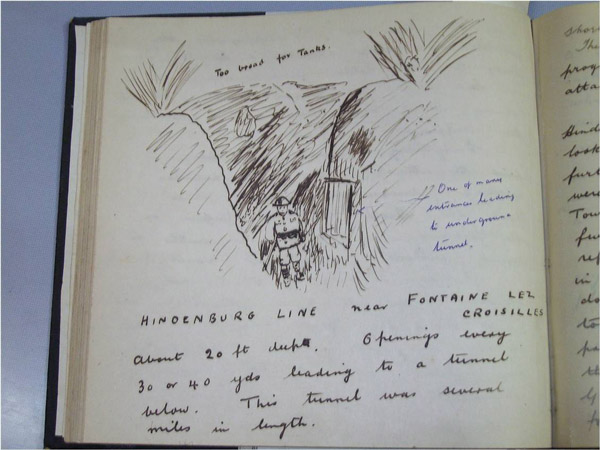 Too broad for Tanks.
One of many
entrances leading
to underground
tunnel.
HINDENBURG LINE near FONTAINE LEZ
CROISILLES
about 20 ft deep. Openings every
30 or 40 yds leading to a tunnel
below. This tunnel was several
miles in length.
shor
The
prog
atta
Hind
look
furt
were
Tow
few
ref
in
do
to
pa
th